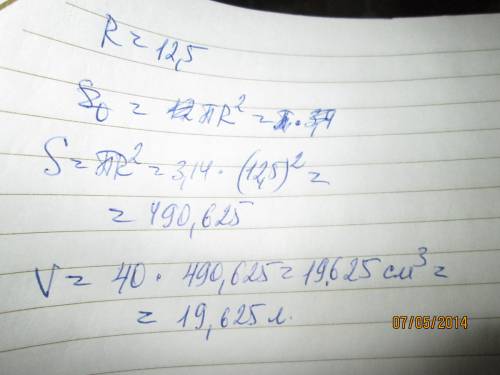 R = 12,5
S = πR² =
S = πR² = 3,14 · (12,5)² =
= 490,625
V = 40 · 490,625 = 19625 см³ =
= 19,625 л.
07/05/2014